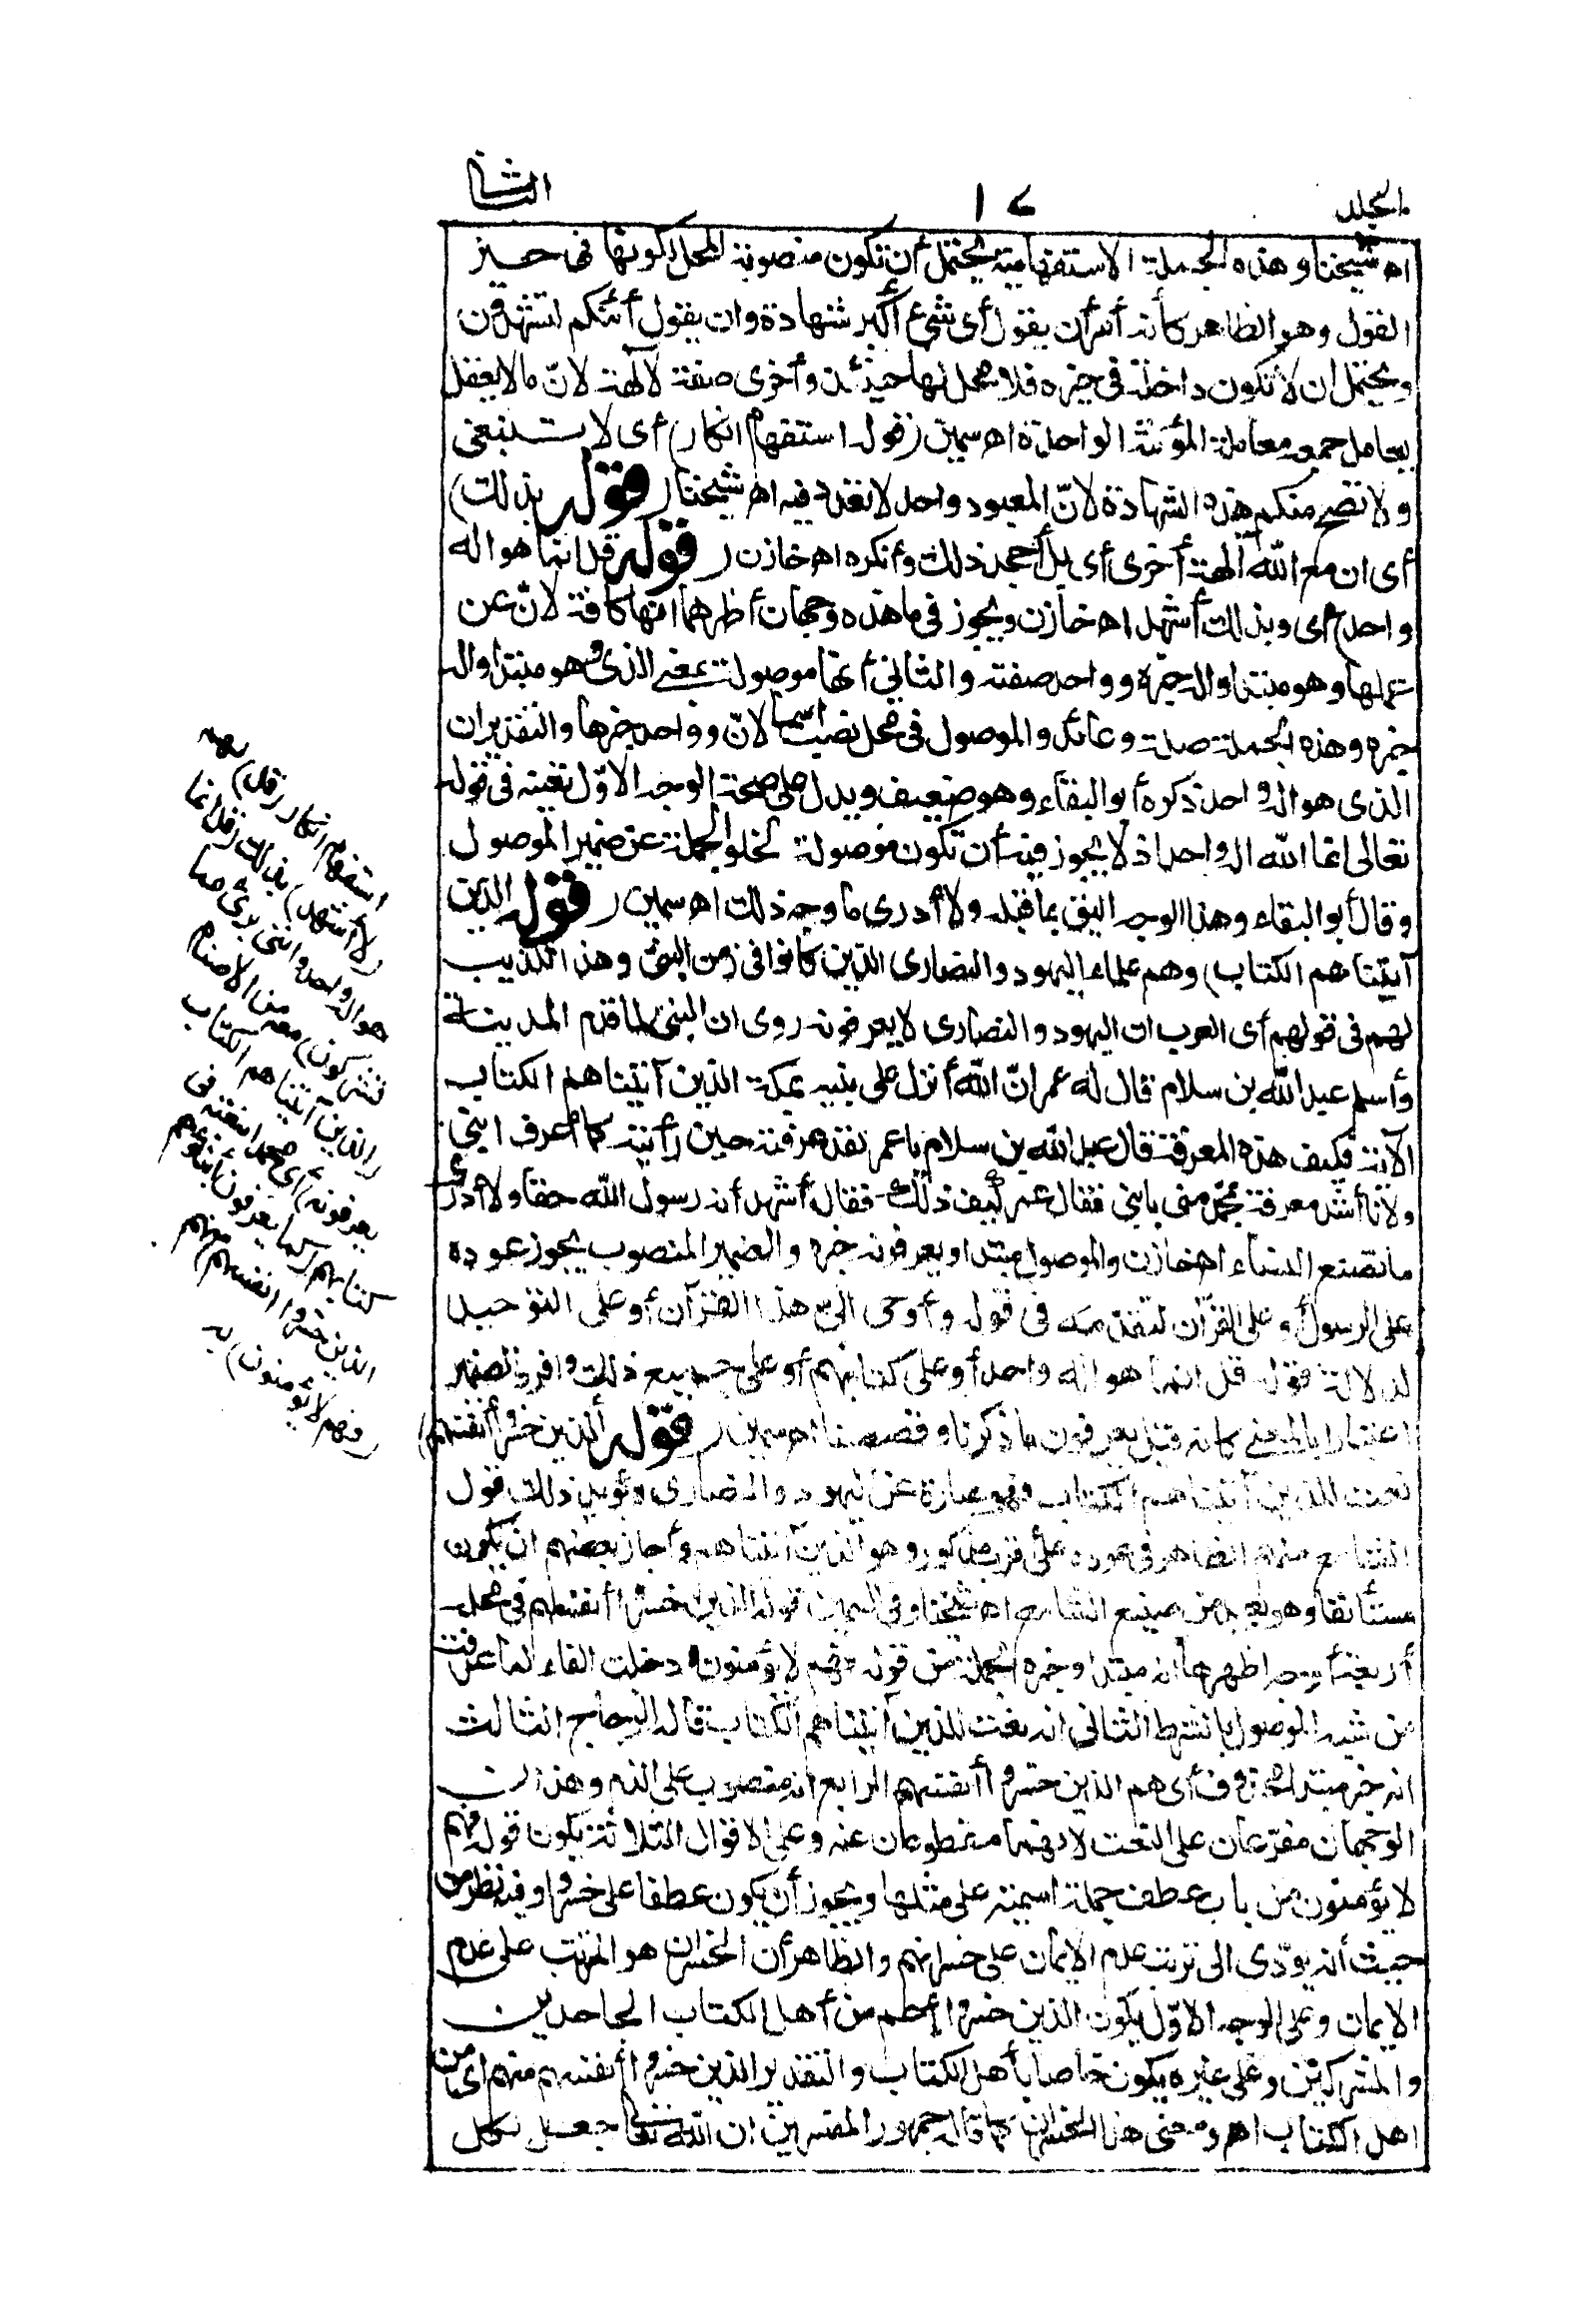 المجلد
١٧
الثانى
اه شيخنا وهذه الجملة الاستفهامية يحتمل أن تكون منصوبة المحل لكونها فى حيز
القول وهو الظاهر كأنه أمر أن يقول أى شئ أكبر شهادة وان يقول أئنكم لتشهدون
ويحتمل ان لا تكون داخلة فى حيزه فلا محل لها حينئذ وأخرى صفة لآلهة لانّ ما لا يعقل
يعامل جمعه معاملة المؤنثة الواحدة اه سمين (قوله استفهام انكار) أى لا ينبغى
ولا تصح منكم هذه الشهادة لانّ المعبود واحد لا تعدد فيه اه شيخنا (قوله بذلك)
أى ان مع الله آلهة أخرى أى بل أجحد ذلك وأنكره اه خازن (قوله قل انما هو اله
واحد) أى وبذلك أشهد اه خازن ويجوز فى ما هذه وجهان أظهرهما انها كافة لانّ عن
عملها وهو مبتدا واله خبره وواحد صفته والثانى أنها موصولة بمعنى الذى وهو مبتدا واله
خبره وهذه الجملة صلة وعائد والموصول فى محل نصب اسما لانّ وواحد خبرها والتقدير ان
الذى هو اله واحد ذكره أبو البقاء وهو ضعيف ويدل على صحة الوجه الاوّل تعينه فى قوله
تعالى انما الله اله واحد اذ لا يجوز فيه أن تكون موصولة لخلو الجملة عن ضمير الموصول
وقال أبو البقاء وهذا الوجه اليق بما قبله ولا أدرى ما وجه ذلك اه سمين (قوله الذين
آتيناهم الكتاب) وهم علماء اليهود والنصارى الذين كانوا فى زمن النبى وهذا تكذيب
لهم فى قولهم أى العرب ان اليهود والنصارى لا يعرفونه روى ان النبى لما قدم المدينة
وأسلم عبد الله بن سلام قال له عمر انّ الله أنزل على نبيه بمكة الذين آتيناهم الكتاب
الآية فكيف هذه المعرفة قال عبد الله بن سلام يا عمر لقد عرفته حين رأيته كما أعرف ابنى
ولأنا أشد معرفة بمحمد منى بابنى فقال عمر كيف ذلك فقال أشهد أنه رسول الله حقا ولا أدرى
ما تصنع النساء اه خازن والموصول مبتدا ويعرفونه خبره والضمير المنصوب يجوز عوده
على الرسول أو على القرآن لتقدمه فى قوله وأوحى الىّ هذا القرآن أو على التوحيد
لدلالة قوله قل انما هو اله واحد أو على كتابهم أو على جميع ذلك وافرد الضمير
اعتبارا بالمعنى كانه قيل يعرفون ما ذكرنا وقصصنا اه سمين (قوله الذين خسروا أنفسهم)
نعت للذين آتيناهم الكتاب فهو عبارة عن اليهود والنصارى ويؤيد ذلك قول
الشارح منهم الظاهر فى عوده على أقرب مذكور وهو الذين آتيناهم وأجاز بعضهم ان يكون
مستأنفا وهو بعيد من صنيع الشارح اه شيخنا وفى السمين قوله الذين خسروا أنفسهم فى محله
أربعة أوجه اظهرها انه مبتدا وخبره الجملة من قوله فهم لا يؤمنون ودخلت الفاء لما عرفت
من شبه الموصول بالشرط الثانى انه نعت للذين آتيناهم الكتاب قاله الزجاج الثالث
انه خبر مبتدا محذوف أى هم الذين خسروا أنفسهم الرابع انه منصوب على الذم وهذان
الوجهان مفرّعان على النعت لانهما مقطوعان عنه وعلى الاقوال الثلاثة يكون قوله فهم
لا يؤمنون من باب عطف جملة اسمية على مثلها ويجوز أن يكون عطفا على خسروا وفيه نظر من
حيث أنه يؤدّى الى ترتب عدم الايمان على خسرانهم والظاهر أن الخسران هو المرتب على عدم
الايمان وعلى الوجه الاوّل يكون الذين خسروا أعم من أهل الكتاب الجاحدين
والمشركين وعلى غيره يكون خاصا بأهل الكتاب والتقدير الذين خسروا أنفسهم منهم أى من
اهل الكتاب اه ومعنى هذا الخسران كما قاله جمهور المفسرين ان الله تعالى جعل لكل
استفهام انكار (قل) لهم
(لا أشهد) بذلك (قل انما
هو اله واحد وانى برئ مما
تشركون) معه من الاصنام
(الذين آتيناهم الكتاب
يعرفونه) أى محمدا بنعته فى
كتابهم (كما يعرفون أبناءهم
الذين خسروا أنفسهم) منهم
(فهم لا يؤمنون) به